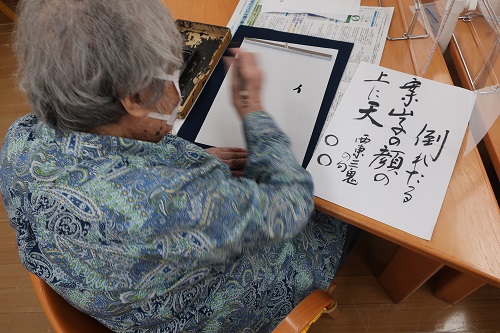 倒れたる
案山子の顔の
上に天
西東三鬼
の句
〇〇